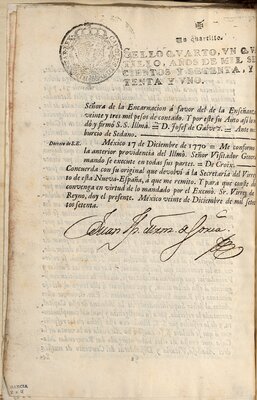 Un quartillo.
SELLO QVARTO, VN QVAR
TILLO, AÑOS DE MIL SE
CIENTOS Y SETENTA, Y
TENTA Y VNO.
Señora de la Encarnacion á favor del de la Enseñanza
veinte y tres mil pesos de contado. Y por este su Auto así lo
dó y firmó S.S. Illmâ. = D. Josef de Galvez. = Ante
burcio de Sedano.
Decreto de S.E. México 17 de Diciembre de 1770 = Me conformo
la anterior providencia del Illmô. Señor Visitador General
mando se execute en todas sus partes. = De Croix.
Concuerda con su original que devolví á la Secretaría del Virrey
to de esta Nueva-España, á que me remito. Y para que conste
convenga en virtud de lo mandado por el Excmô. Sr. Virrey de
Reyno, doy el presente. México veinte de Diciembre de mil sete
tos setenta.
Juan